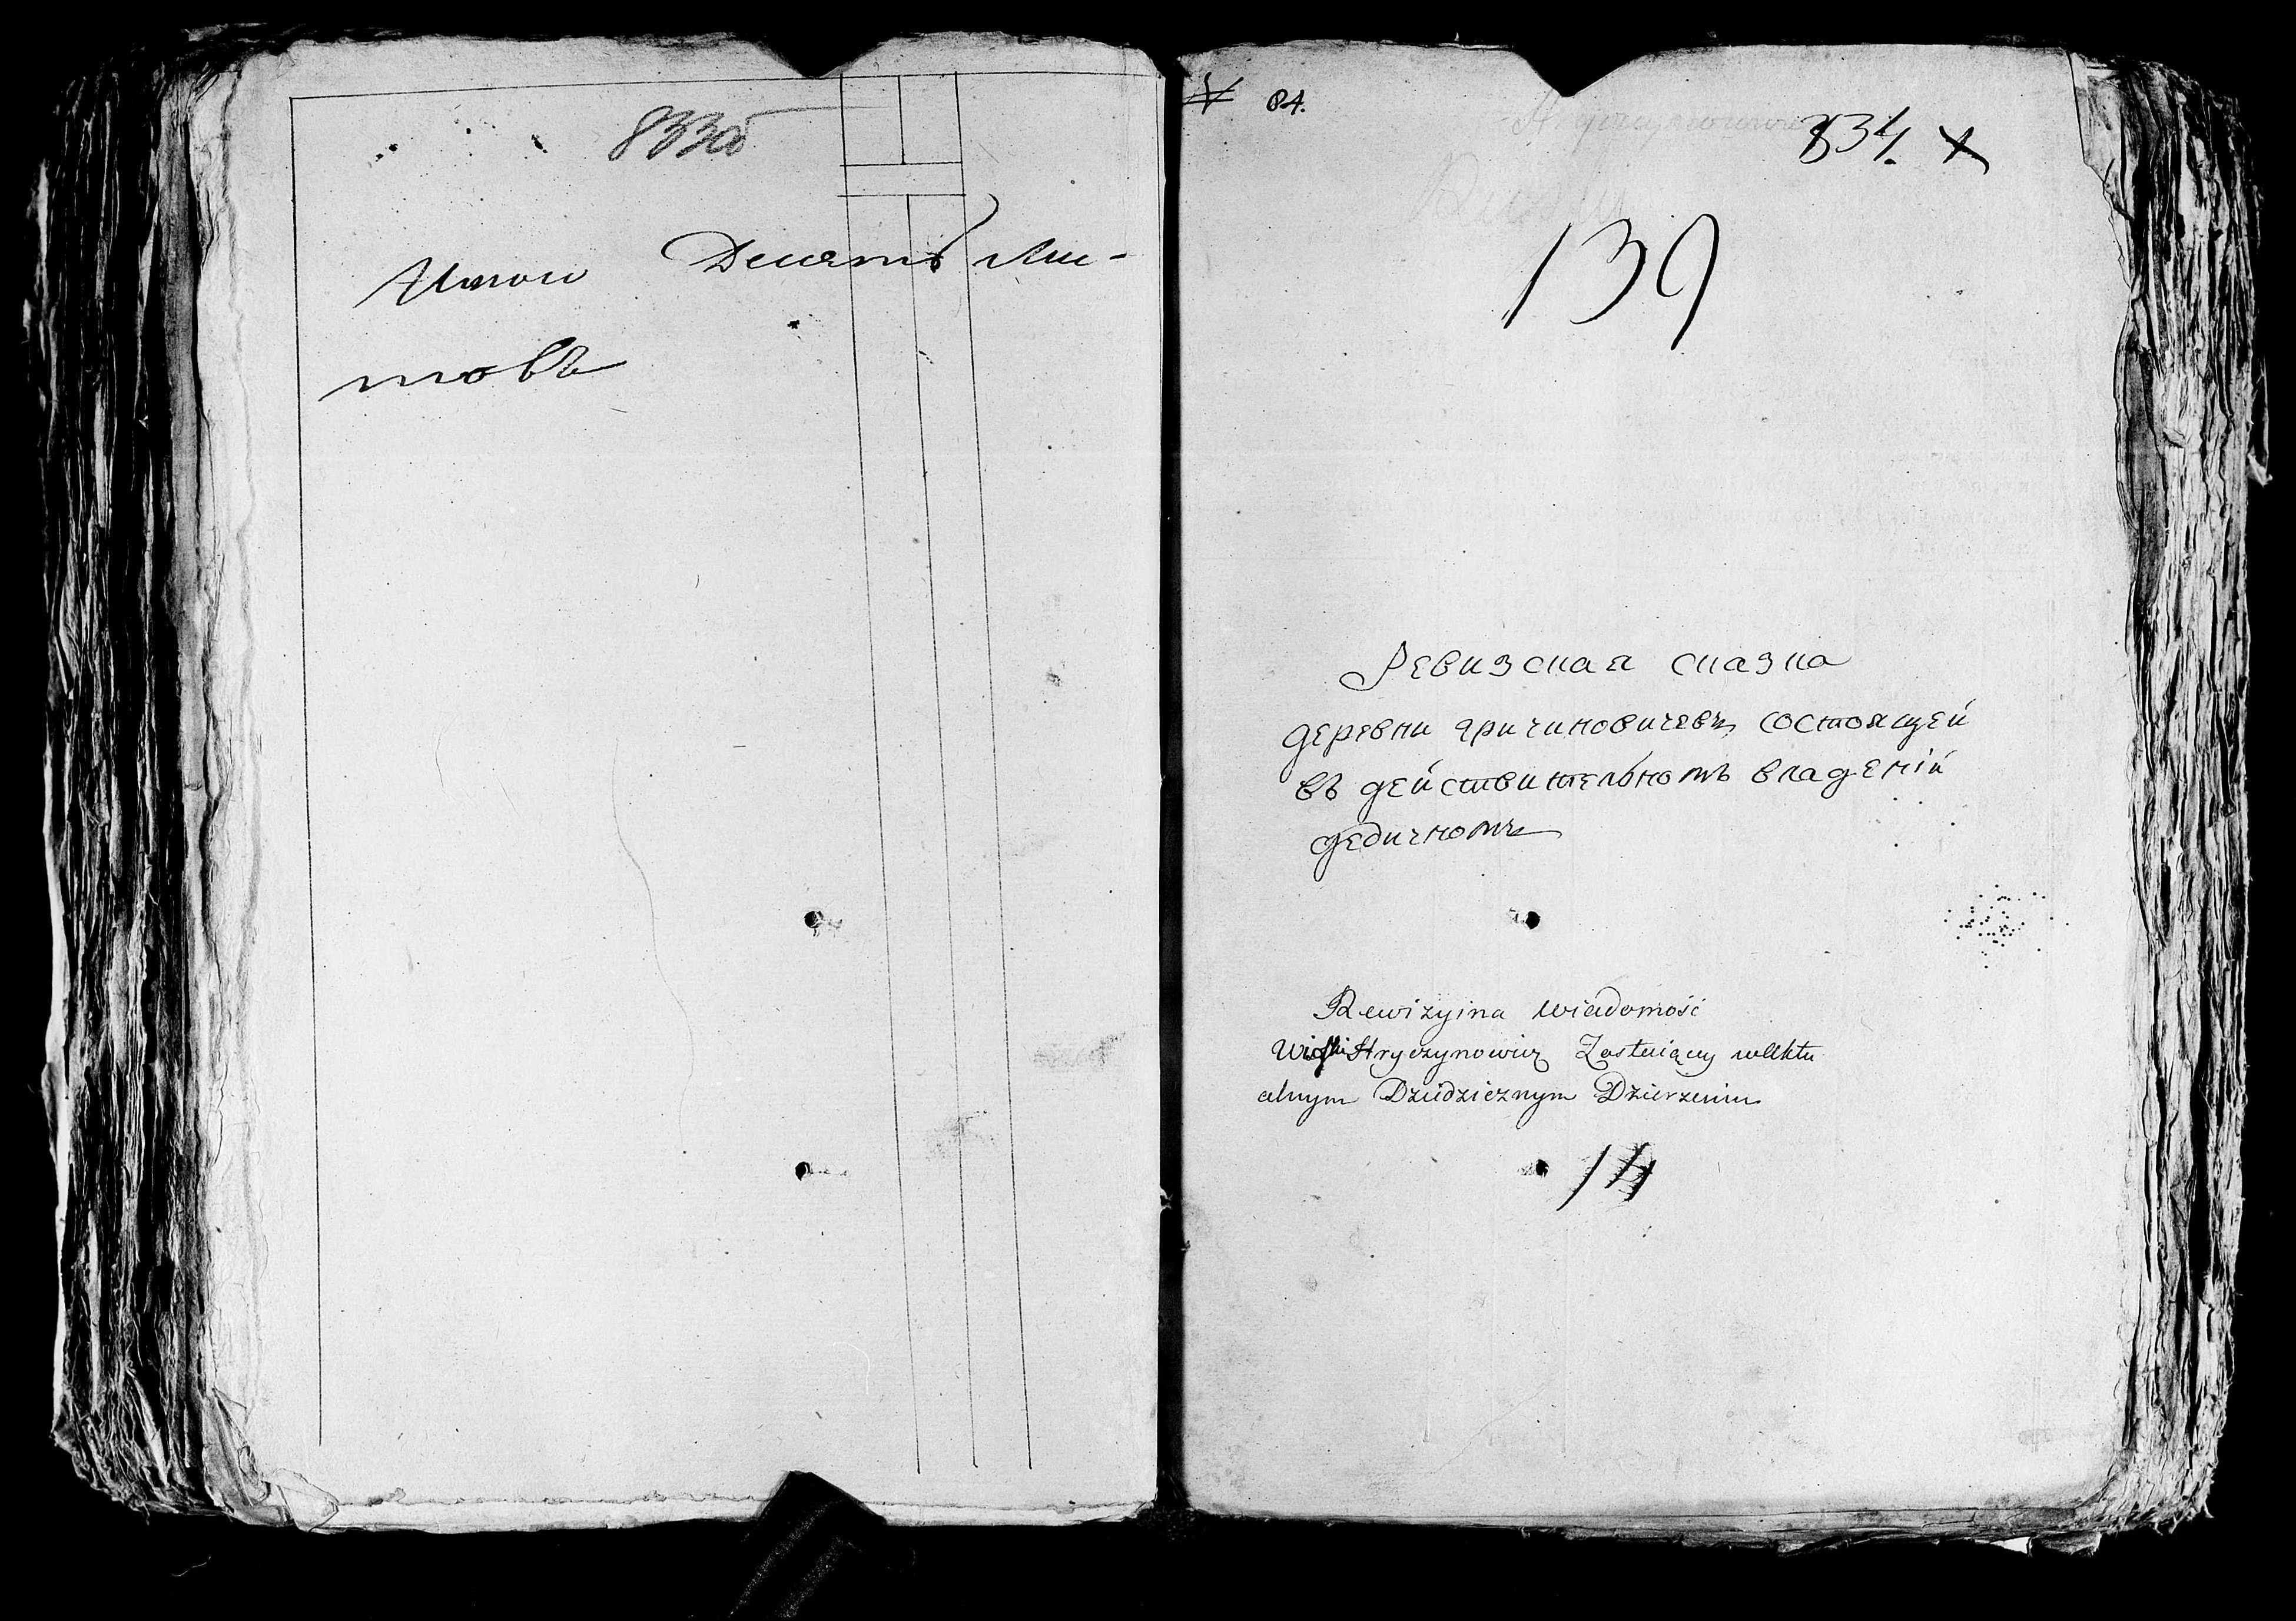 833об
Итого Десять лис-
товъ
84.
834.
139
Ревизская сказка
деревни гричиновичевъ состоящей
въ действительномъ владеній
дедичномъ
Rewizyina wiadomość
Wioski Hryczynowicz Zostaiącey w Aktu
alnym Dziedzicznym Dzierzeniu
14